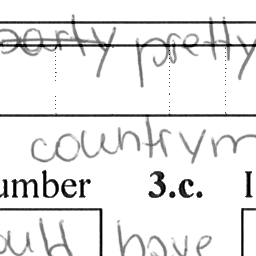 party pretty
countrym
umber 3.c. I
ould have